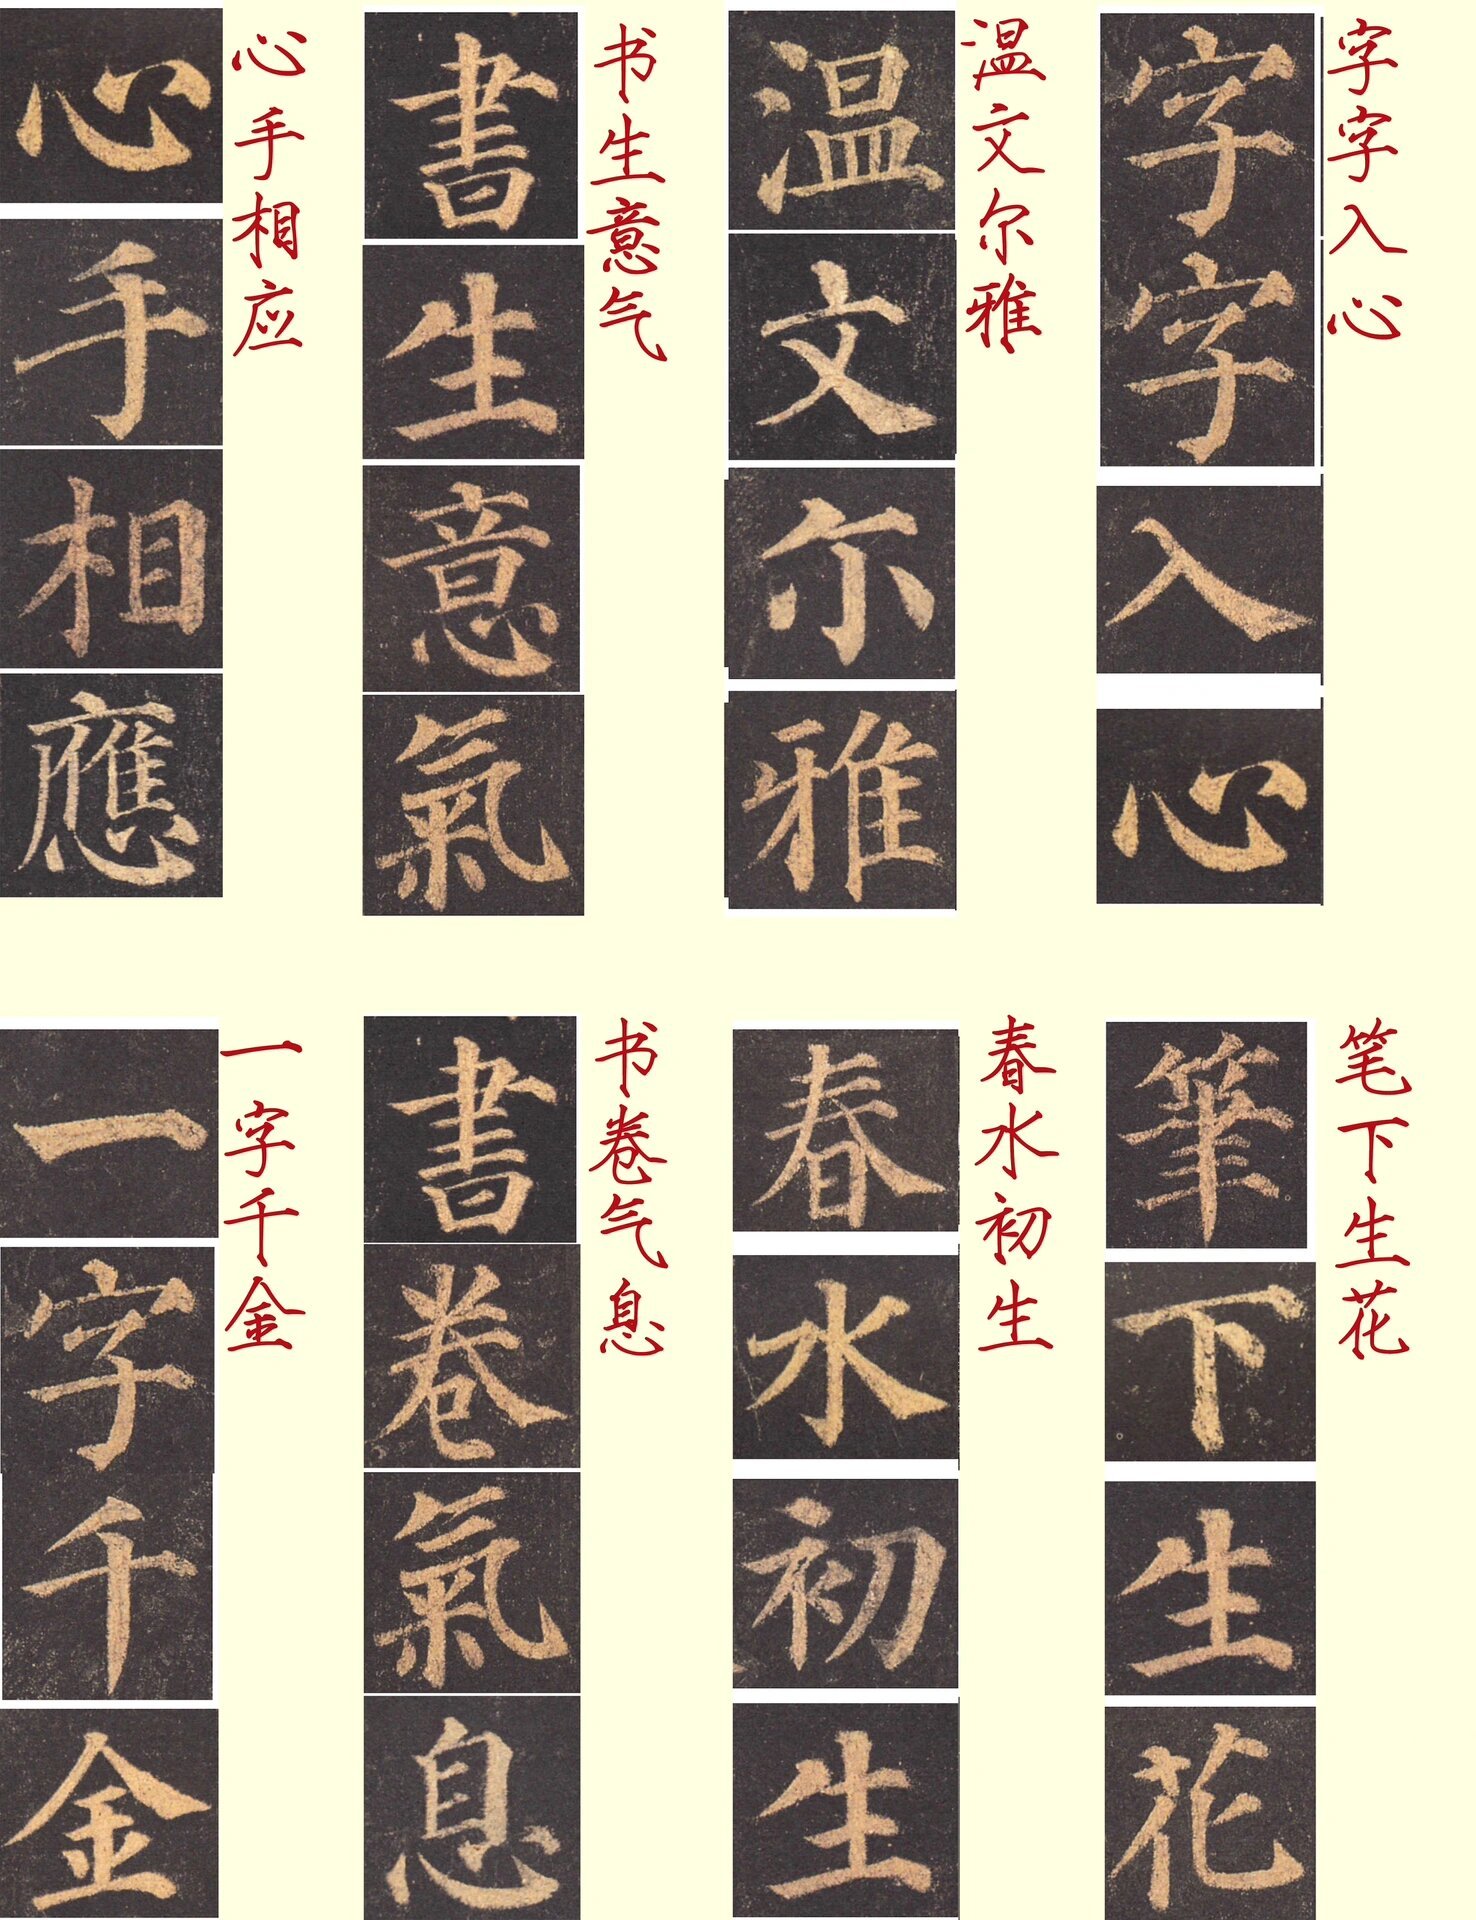 字字入心
字字入心
温文尔雅
温文尔雅
書生意氣
书生意气
心手相應
心手相应
筆下生花
笔下生花
春水初生
春水初生
書卷氣息
书卷气息
一字千金
一字千金